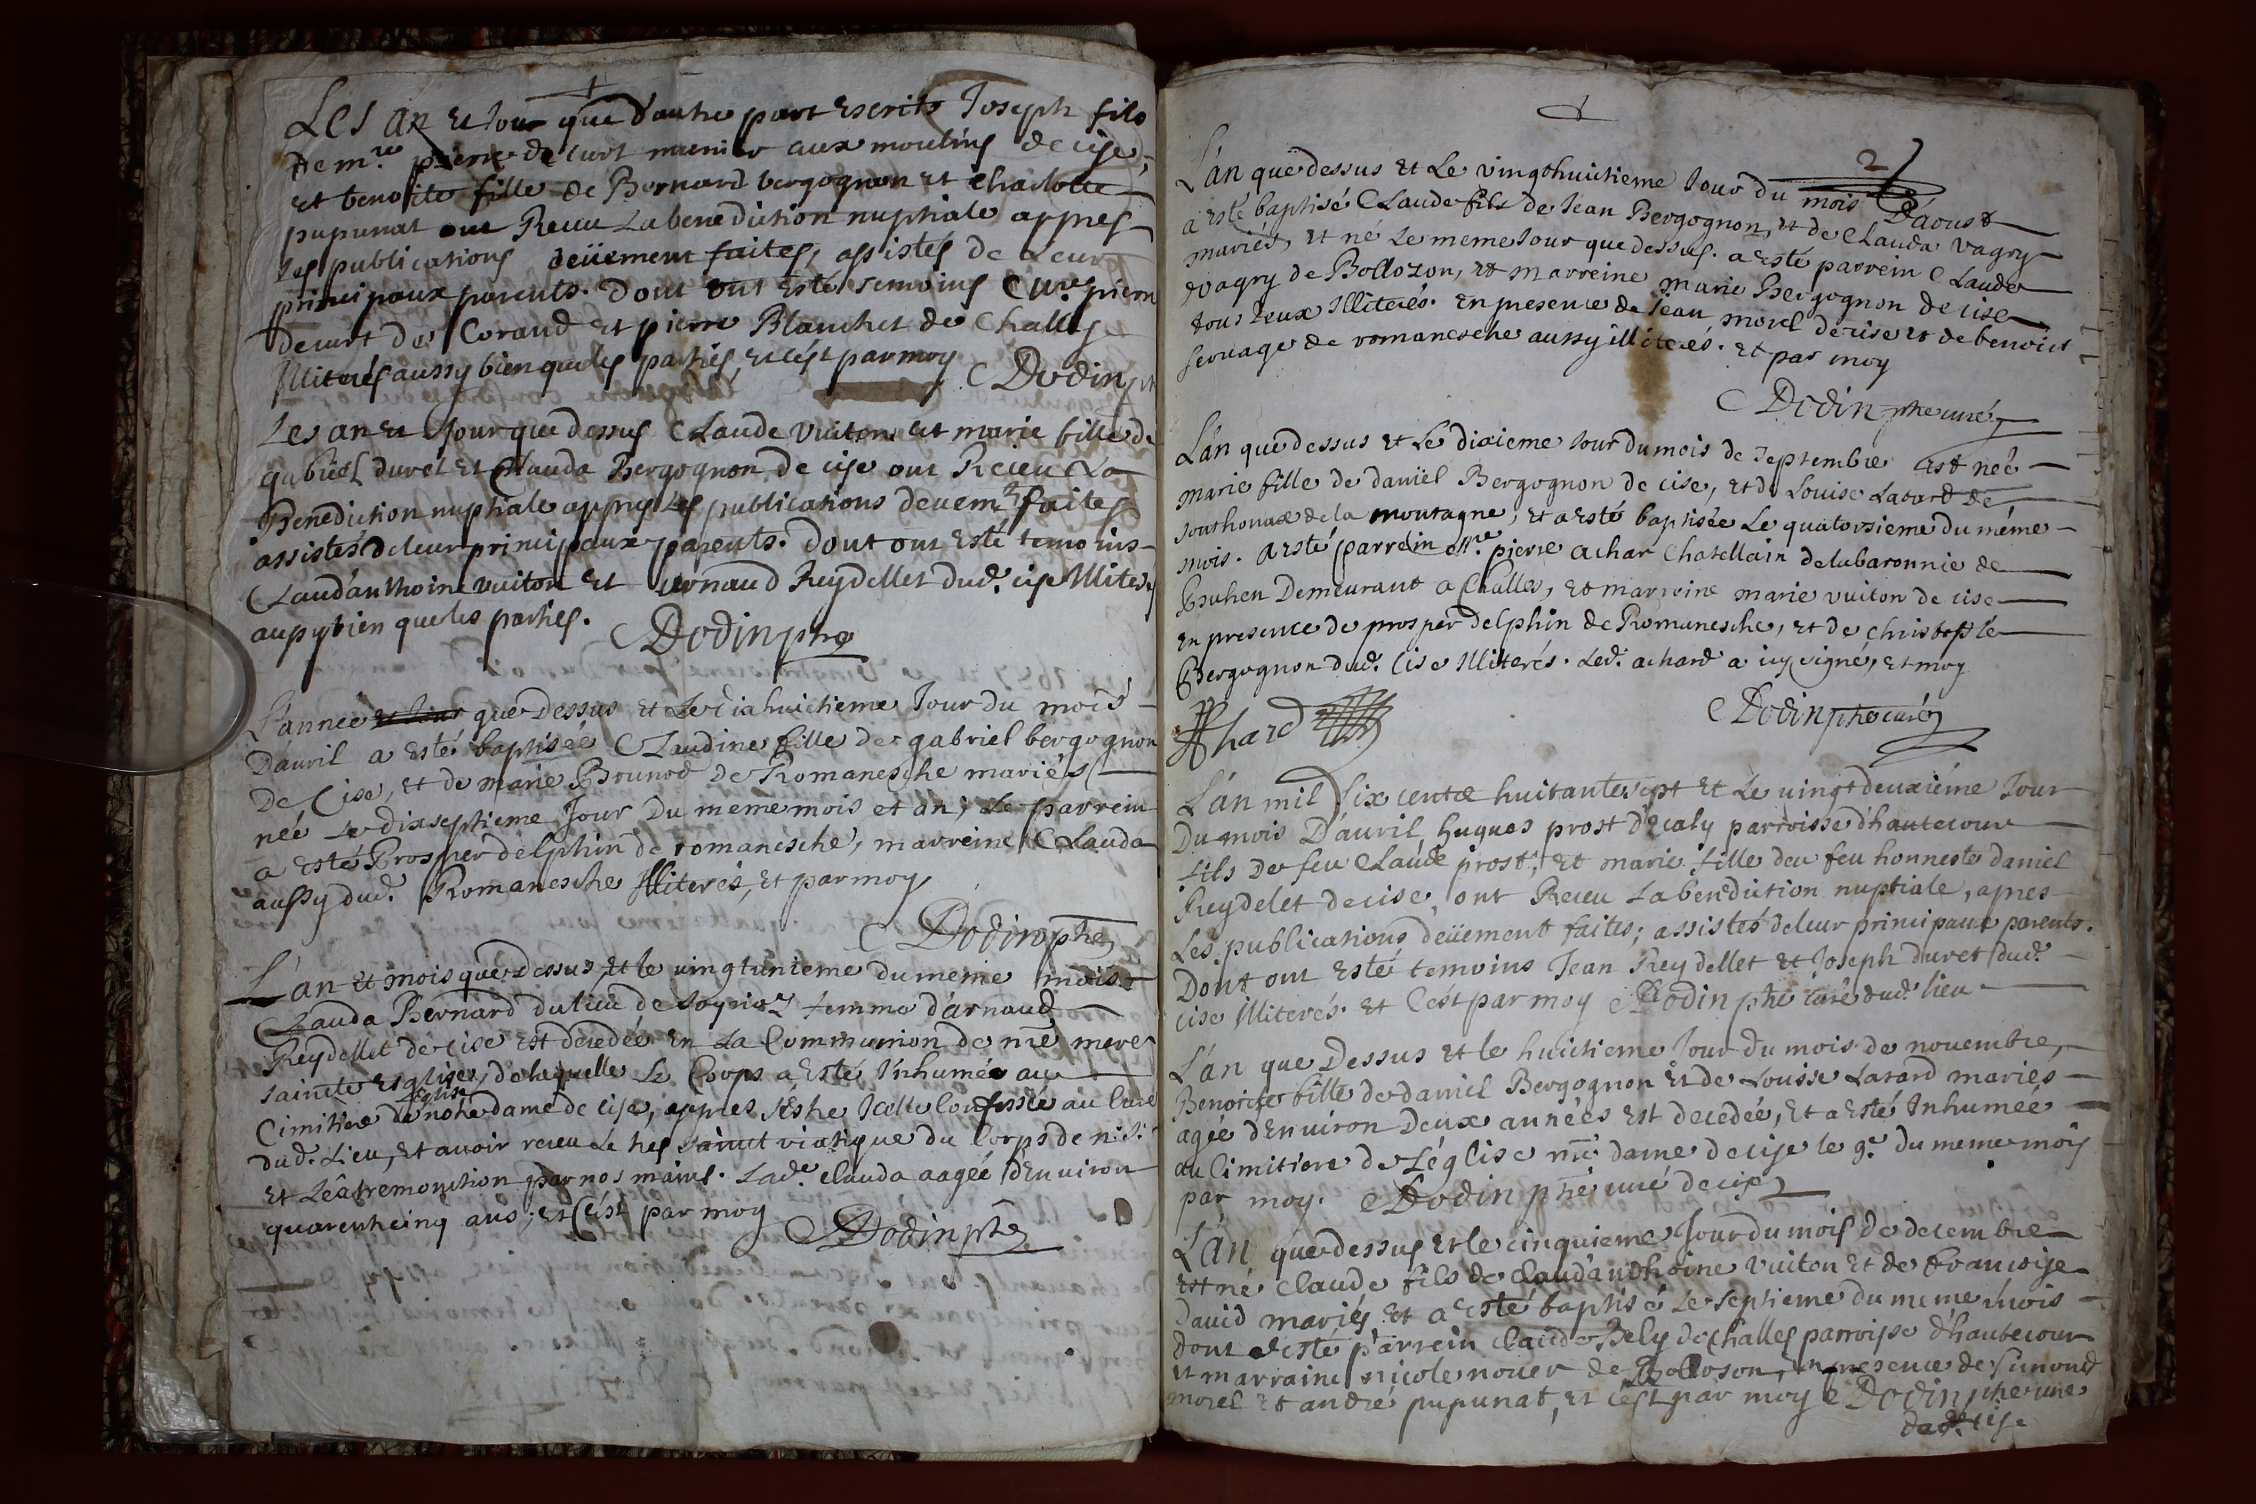 Les an et Jour que d'autre part Escrits Joseph fils
de m.re pierre decurt munier aux moulins de cise,
et benoite fille de Bernard bergognon et Charlotte
pupunat ont Receu La benediction nuptiale appres
Les publications deüement faites, assistés de Leur
principaux parents. Dont ont esté temoins pierre
decurt de Corand et pierre Blanchet de Challes
Illiterés aussy bien que les parties, et cést par moy Dodin
Les an et Jour que dessus Claude Vuiton et marie fille de
gabriel duret et Clauda Bergognon de cise ont Receu La
Benediction nuptiale appres Les publications deuem.t faites
assistés de leur principaux parents. Dont ont esté temoins
Claud'anthoine vuiton et ernaud Reydellet dud. cise Illiterés
aussy bien que les parties. Dodin pbre
L'annee et Jour que Dessus et Le diahuictieme Jour du mois
D'auril a esté baptisée Claudine fille de gabriel bergognon
De Cise, et de marie Brunod de Romanesche mariés
neé Le dixseptieme Jour Du meme mois et an; Le parrein
a esté Prosper delphin de romanesche, marreine Clauda
aussy dud. Romanesche Illiterés, et par moy
Dodin pbre
L'an et mois que dessus, et le uingtunieme du meme mois
Clauda Bernard du lieu de femme d'arnaud
Reydellet de cise est decedée En La Communion de nre mere
saincte Esglise, de laquelle Le Corps a esté Inhumée au
Cimitiere de l'eglise notre dame de cise, appres s'estre Icelle Confessée au Curé
dud. Lieu, et auoir receu Le tres sainct viatique du Corps de n.s.
et Lêxtremonction par nos mains. Lad.e clauda aagée d'Enuiron
quarentecinq ans; et Cést par moy Dodin pbre
2
L'an que dessus et Le vingthuictieme Jour du mois D'aoust
a esté baptisé Claude fils de Jean Bergognon, et de Clauda Vagry
mariés, et né Le meme Jour que dessus. a esté parrein Claude
Vagry de Bollozon, et marreine marie Bergognon de cise
tous deux Illiterés. En presence de Jean morel de cise et de benoict
seruage de romanesche aussy illiterés. et par moy
Dodin pbre curé
L'an que dessus et Lé dixieme Jour du mois de septembre est neé
marie fille de daniël Bergognon de cise, et de Louise Latard de
Southonax de la montagne, et a esté baptisée Le quatorsieme du méme
mois. A esté parrein m.re pierre achar Chatellain de la baronnie de
Buhen Demeurant a Challes, et marreine marie vuiton de cise
en presence de prosper delphin de Romanesche, et de christofle
Bergognon dud. Cise Illiterés. Led. achard a icy signé, et moy
Achard Dodin pbre curé
L'an mil six centz huitante sept et Le uingtdeuxiéme Jour
Du mois D'auril hugues prost d'ecaly parroisse d'hautecour
fils de feu Claude prost, et marie fille deu feu honneste daniel
Reydelet de cise, ont Receu La benediction nuptiale, apres
Les publications deüement faites; assistés de leur principaux parents.
Dont ont esté temoins Jean Reydellet et Joseph duret dud.
cise Illiterés. et Cést par moy Dodin pbre curé dud. lieu
L'an que Dessus et le huictieme Jour du mois de nouembre,
Benoite fille de daniel Bergognon et de Louise Latard mariés
agée d'Enuiron Deux années est decedée, et a esté Inhumée
au Cimitiere de Léglise nre dame de cise le 9.e du meme mois
par moy. Dodin pbre curé de cise
L'an que dessus et le cinquieme Jour du mois de decembre
est né Claude fils de Claud'anthoine Vuiton et de francoise
David mariés et a esté baptisé Le septieme du meme mois
dont a esté parrein Claude Bely de Challes parroisse d'hautecour
et marraine nicole nouer de Bolloson, En presence de simond
morel et andré pupunat, et Cést par moy Dodin pbre curé
dud. cise